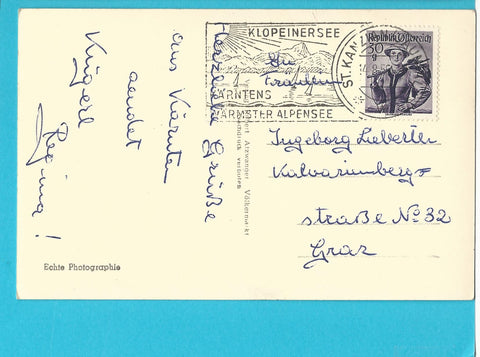 Herzliche Grüße
aus Kärnten
sendet
Kügerl
Regina!
Echte Photographie
KLOPEINERSEE
KÄRNTENS
WÄRMSTER ALPENSEE
ST. KAN
Republik Österreich
30
g
An
Fräulein
Ingeborg
Kalvarienberg=
straße No 32
Graz
Arzwander, Völkermarkt
verboten